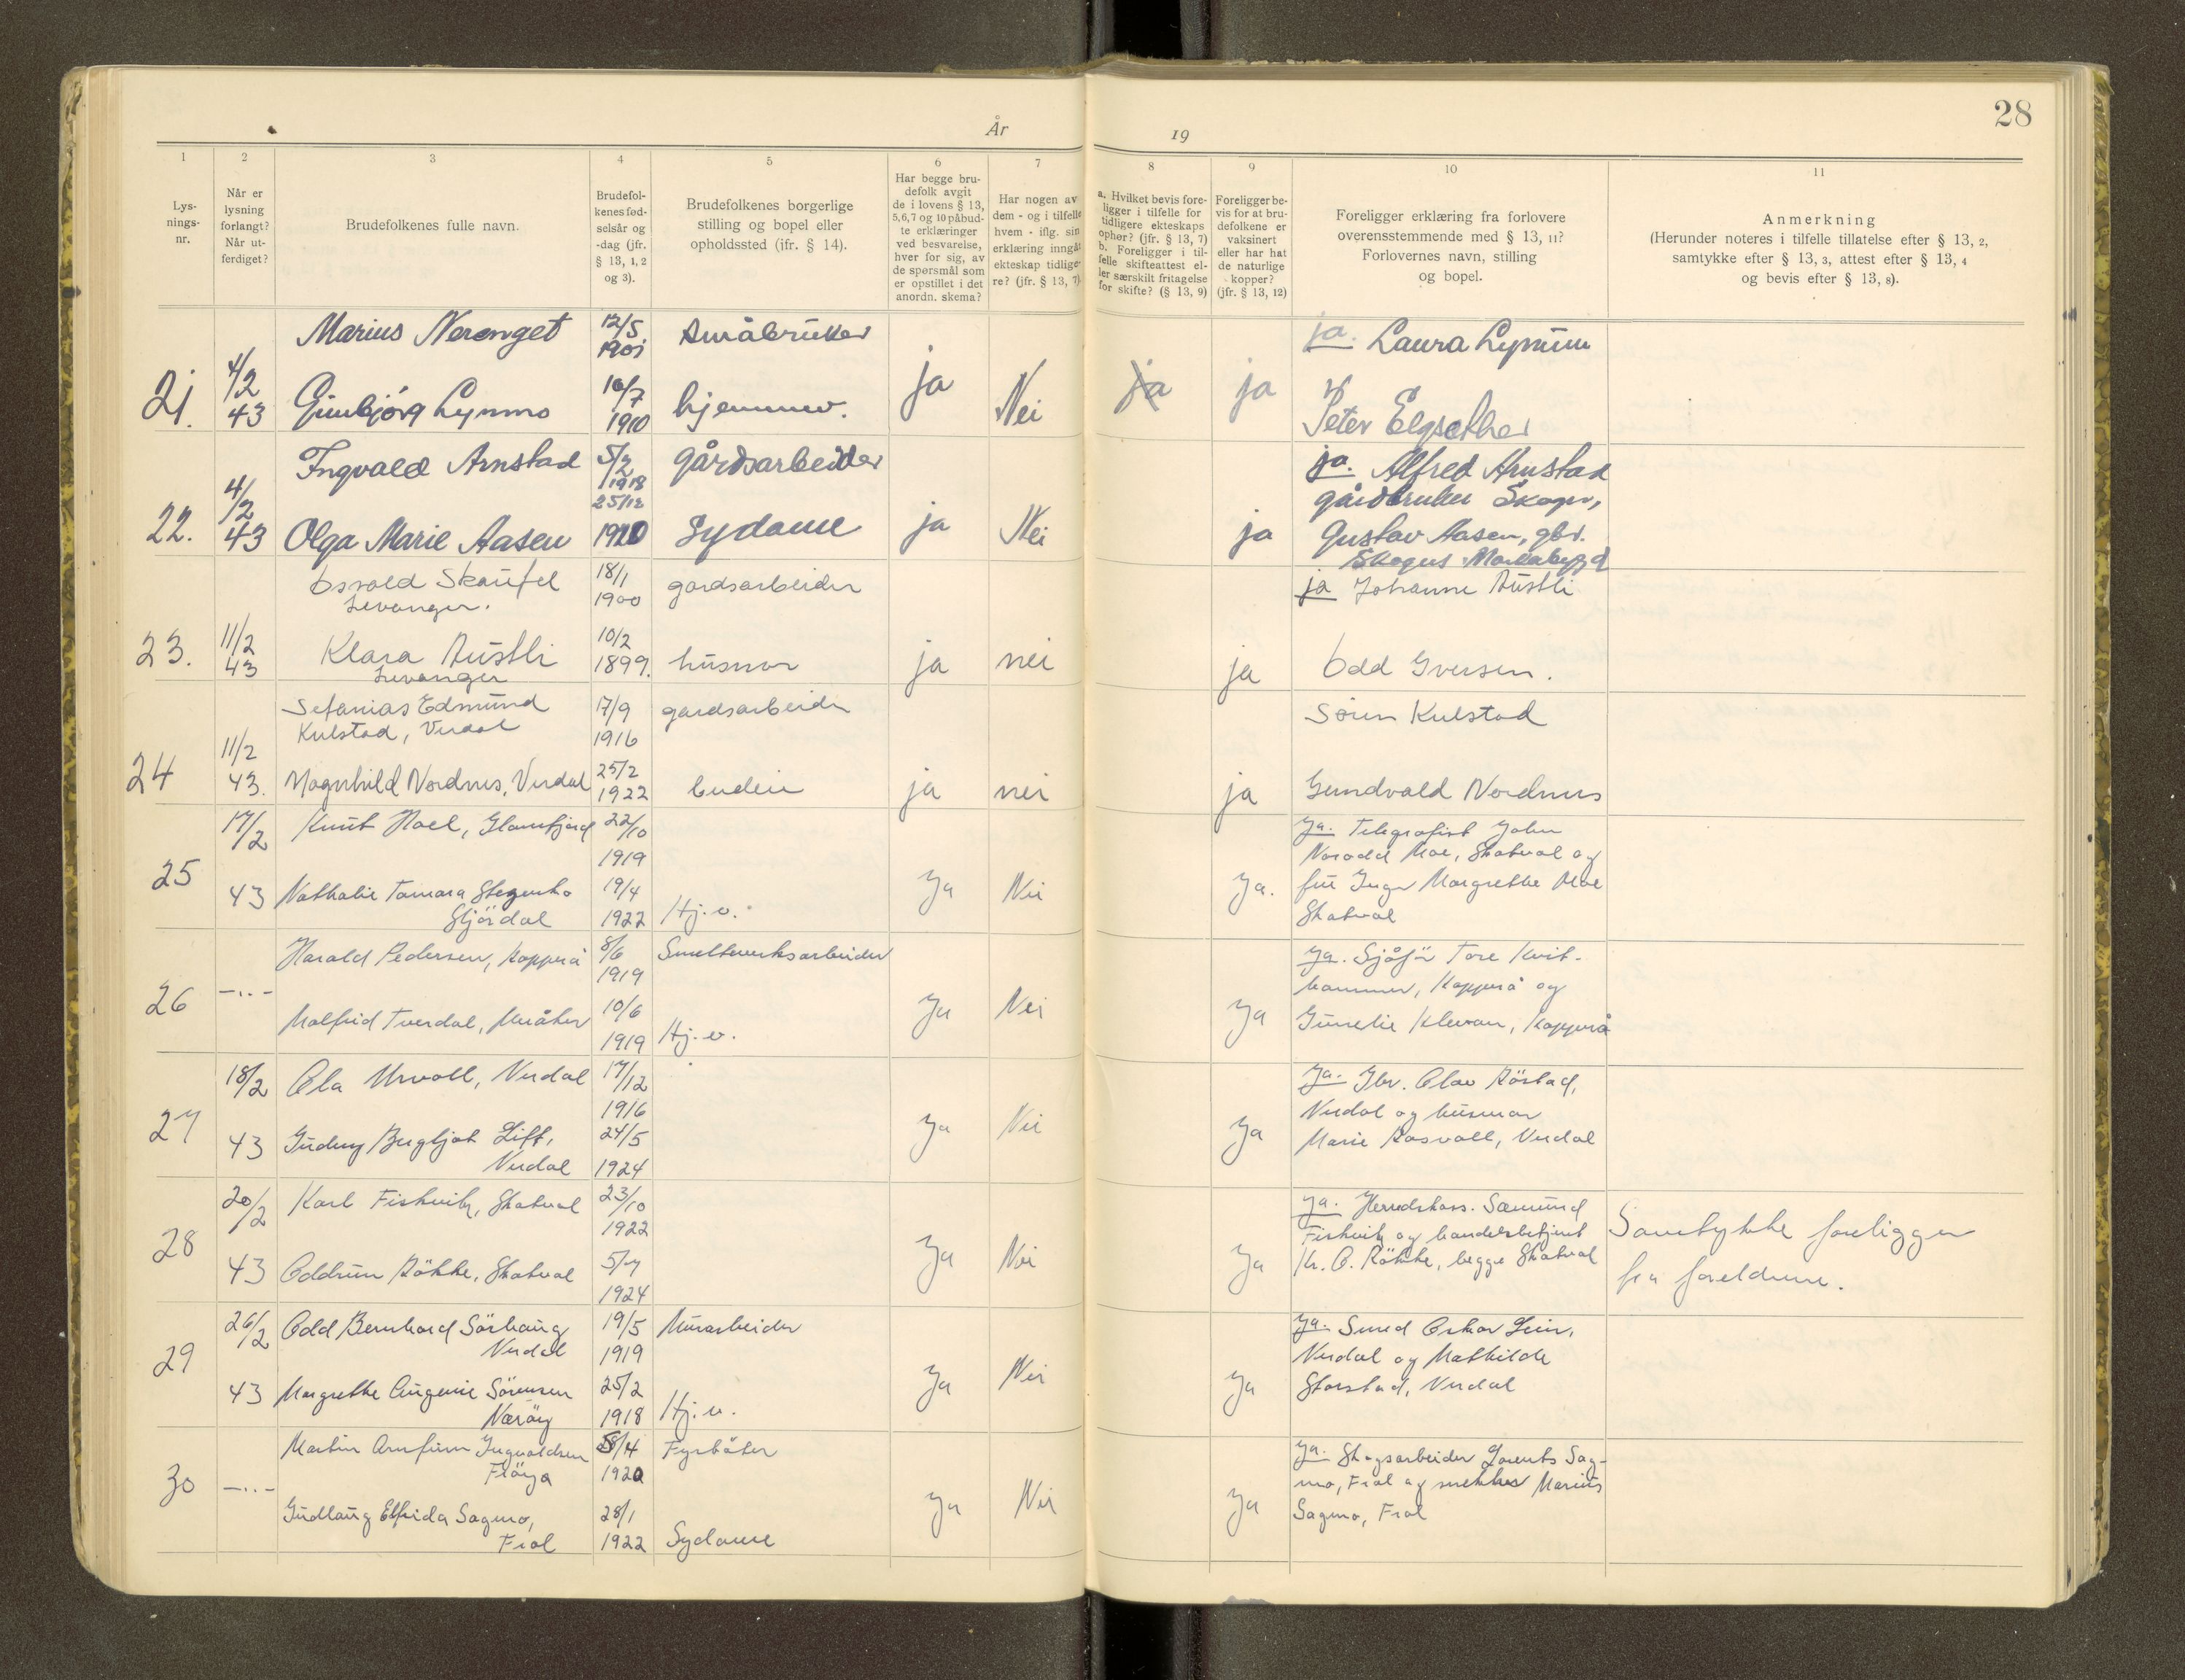 28
År 19
1 2 3 4 5 6 7 8 9 10 11
Lys-
nings-
nr.
Når er
lysning
forlangt?
Når ut-
ferdiget?
Brudefolkenes fulle navn.
Brudefol-
kenes fød-
selsår og
-dag (jfr.
§ 13, 1, 2
og 3).
Brudefolkenes borgerlige
stilling og bopel eller
opholdssted (jfr. § 14).
Har begge bru-
defolk avgit
de i lovens § 13,
5,6,7 og 10 påbud-
te erklæringer
ved besvarelse,
hver for sig, av
de spørsmål som
er opstillet i det
anordn. skema?
Har nogen av
dem - og i tilfelle
hvem - iflg. sin
erklæring inngått
ekteskap tidlige-
re? (jfr. § 13, 7)
a. Hvilket bevis fore-
ligger i tilfelle for
tidligere ekteskaps
ophør? (jfr. § 13, 7)
b. Foreligger i til-
felle skifteattest el-
ler særskilt fritagelse
for skifte? (§ 13, 9)
Foreligger be-
vis for at bru-
defolkene er
vaksinert
eller har hat
de naturlige
kopper?
(jfr. § 13, 12)
Foreligger erklæring fra forlovere
overensstemmende med § 13, 11?
Forlovernes navn, stilling
og bopel.
Anmerkning
(Herunder noteres i tilfelle tillatelse efter § 13, 2,
samtykke efter § 13, 3, attest efter § 13, 4
og bevis efter § 13, 8).
21.
4/2
43
Marius Nerenget
12/5
1901
Småbruker
Gunbjørg Lynmo
10/7
1910
hjemmev.
ja
Nei
ja
ja
ja. Laura Lynum
Peter Elgsether
22.
4/2
43
Ingvald Arnstad
5/2
1918
gårdsarbeider
Olga Marie Aasen
25/12
1920
Sydame
ja
Nei
ja
ja. Alfred Arnstad
gårdbruker Skogn,
Gustav Aasen, gbr.
Skogns Markabygd
23.
11/2
43
Osvald Skaufel
Levanger.
18/1
1900
gardsarbeider
Klara Austli
Levanger
10/2
1899.
husmor
ja
nei
ja
ja Johanne Austli
Odd Iversen.
24
11/2
43.
Sefanias Edmund
Kulstad, Verdal
17/9
1916
gardsarbeider
Magnhild Nordnes, Verdal
25/2
1922
budeie
ja
nei
ja
Søren Kulstad
Gundvald Nordnes
25
17/2
43
Knut Moel, Glomfjord
22/10
1919
Nathalie Tamara
Stjördal
19/4
1922
Hj.v.
Ja
Nei
Ja.
Ja. Telegrafist John
Moe, Skatval og
fru Inger Margrethe Moe
Skatval
26
—..—
Harald Pedersen, Kopperå
8/6
1919
Smelteverksarbeider
Malfrid Tverdal, Meråker
10/6
1919
Hj.v.
Ja
Nei
Ja
Ja. Sjåfør Tore Kvit-
hammer, Kopperå og
Gunelie Klevan, Kopperå
27
18/2
43
Ola Urvoll, Verdal
17/12
1916
Gudny Bergljot Lift,
Verdal
24/5
1924
Ja
Nei
Ja
Ja. Gbr. Olav Röstad,
Verdal og husmor
Marie Rosvoll, Verdal
28
20/2
43
Karl Fiskvik, Skatval
23/10
1922
Oddrun Rökke, Skatval
5/7
1924
Ja
Nei
Ja
Ja. Herredskass. Sæmund
Fiskvik og handelsbetjent
Kr. O. Rökke, begge Skatval
Samtykke foreligger
fra foreldrene.
29
26/2
43
Odd Bernhard Sörhaug
Verdal
19/5
1919
Murarbeider
Margrethe Eugenie Sörensen
Næröy
25/2
1918
Hj.v.
Ja
Nei
Ja
Ja. Smed Oskar Lein,
Verdal og Mathilde
Storstad, Verdal
30
—..—
Martin Arnfinn Ingvaldsen
Fröya
28/4
1920
Fyrböter
Gudlaug Elfrida Sagmo,
Frol
28/1
1922
Sydame
Ja
Nei
Ja
Ja. Skogsarbeider Lorents Sag-
mo, Frol og snekker Marius
Sagmo, Frol